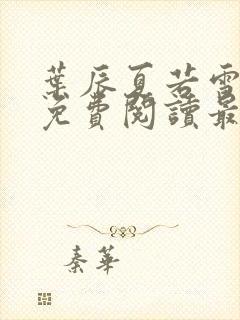 葉辰夏若雪
免費閱讀最
秦華